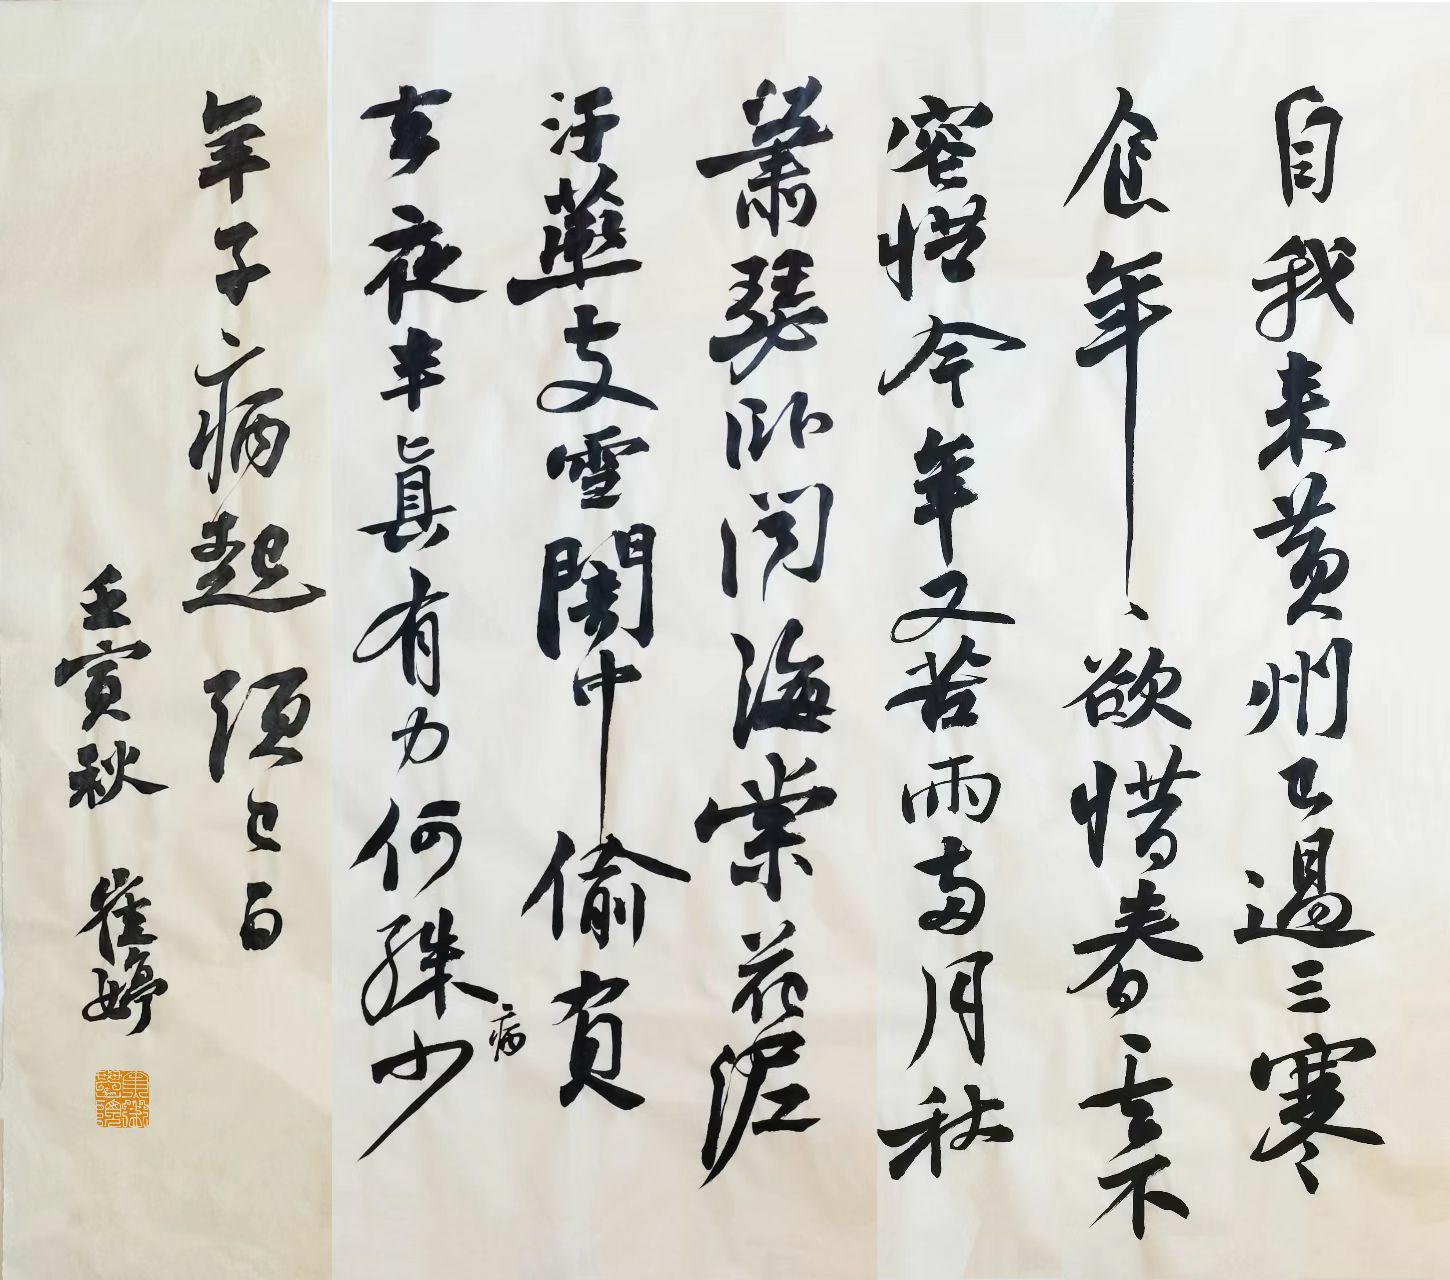 自我来黄州已過三寒
食年〻欲惜春春去不
容惜今年又苦雨兩月秋
蕭瑟卧闻海棠花泥
汙燕支雪闇中偷負
去夜半真有力何殊少
病
年子病起須已白
壬寅秋
崔婷